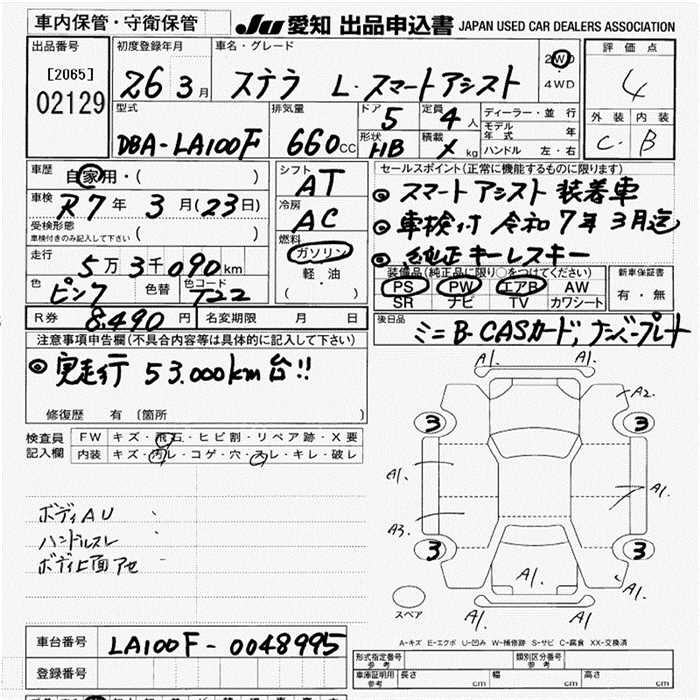 車内保管・守衛保管
JU 愛知 出品申込書 JAPAN USED CAR DEALERS ASSOCIATION
出品番号 初度登録年月 車名・グレード 評価点
[2065]
02129
26 3月 ステラ L・スマートアシスト 2WD
4WD
4
型式 排気量 ドア 定員 ディーラー・並行 外装 内装
DBA-LA100F 660cc 5 4人
モデル年式 年
形状 HB 積載 X kg ハンドル 左・右
C・ B
車歴 自家用・( )
車検 R7年 3月(23日)
受検形態
車検付きのみ記入して下さい ( )
走行 5万3千090km
色 ピンク 色替 色コード T22
R券 8,490円 名変期限 月 日
シフト AT
冷房 AC
燃料
ガソリン
軽・油
( )
セールスポイント(正常に機能するものに限ります)
◎スマートアシスト装着車
◎車検付 令和7年3月迄
◎純正キーレスキー
装備品(純正品に限り〇をつけてください) 新車保証書
PS PW エアB AW
SR ナビ TV カワシート
有・無
後日品 ミニB-CASカード,ナンバープレート
注意事項申告欄(不具合内容等は具体的に記入して下さい)
◎実走行 53.000km台!!
修復歴 有 〔箇所 〕
検査員記入欄
FW キズ・飛石・ヒビ割・リペア跡・X要
内装 キズ・汚レ・コゲ・穴・スレ・キレ・破レ
ボディAU
ハンドルスレ
ボディ上面アセ
A1.
A1.
3 3
A2.
A1.
A1.
A3.
3 3
A1.
A1.
A1. A1.
スペア
A-キズ E-エクボ U-凹み W-補修跡 S-サビ C-腐食 XX-交換済
車台番号 LA100F-0048995
登録番号
形式指定番号 参考 類別区分番号 参考
車庫証明用 参考 長さ cm 幅 cm 高さ cm